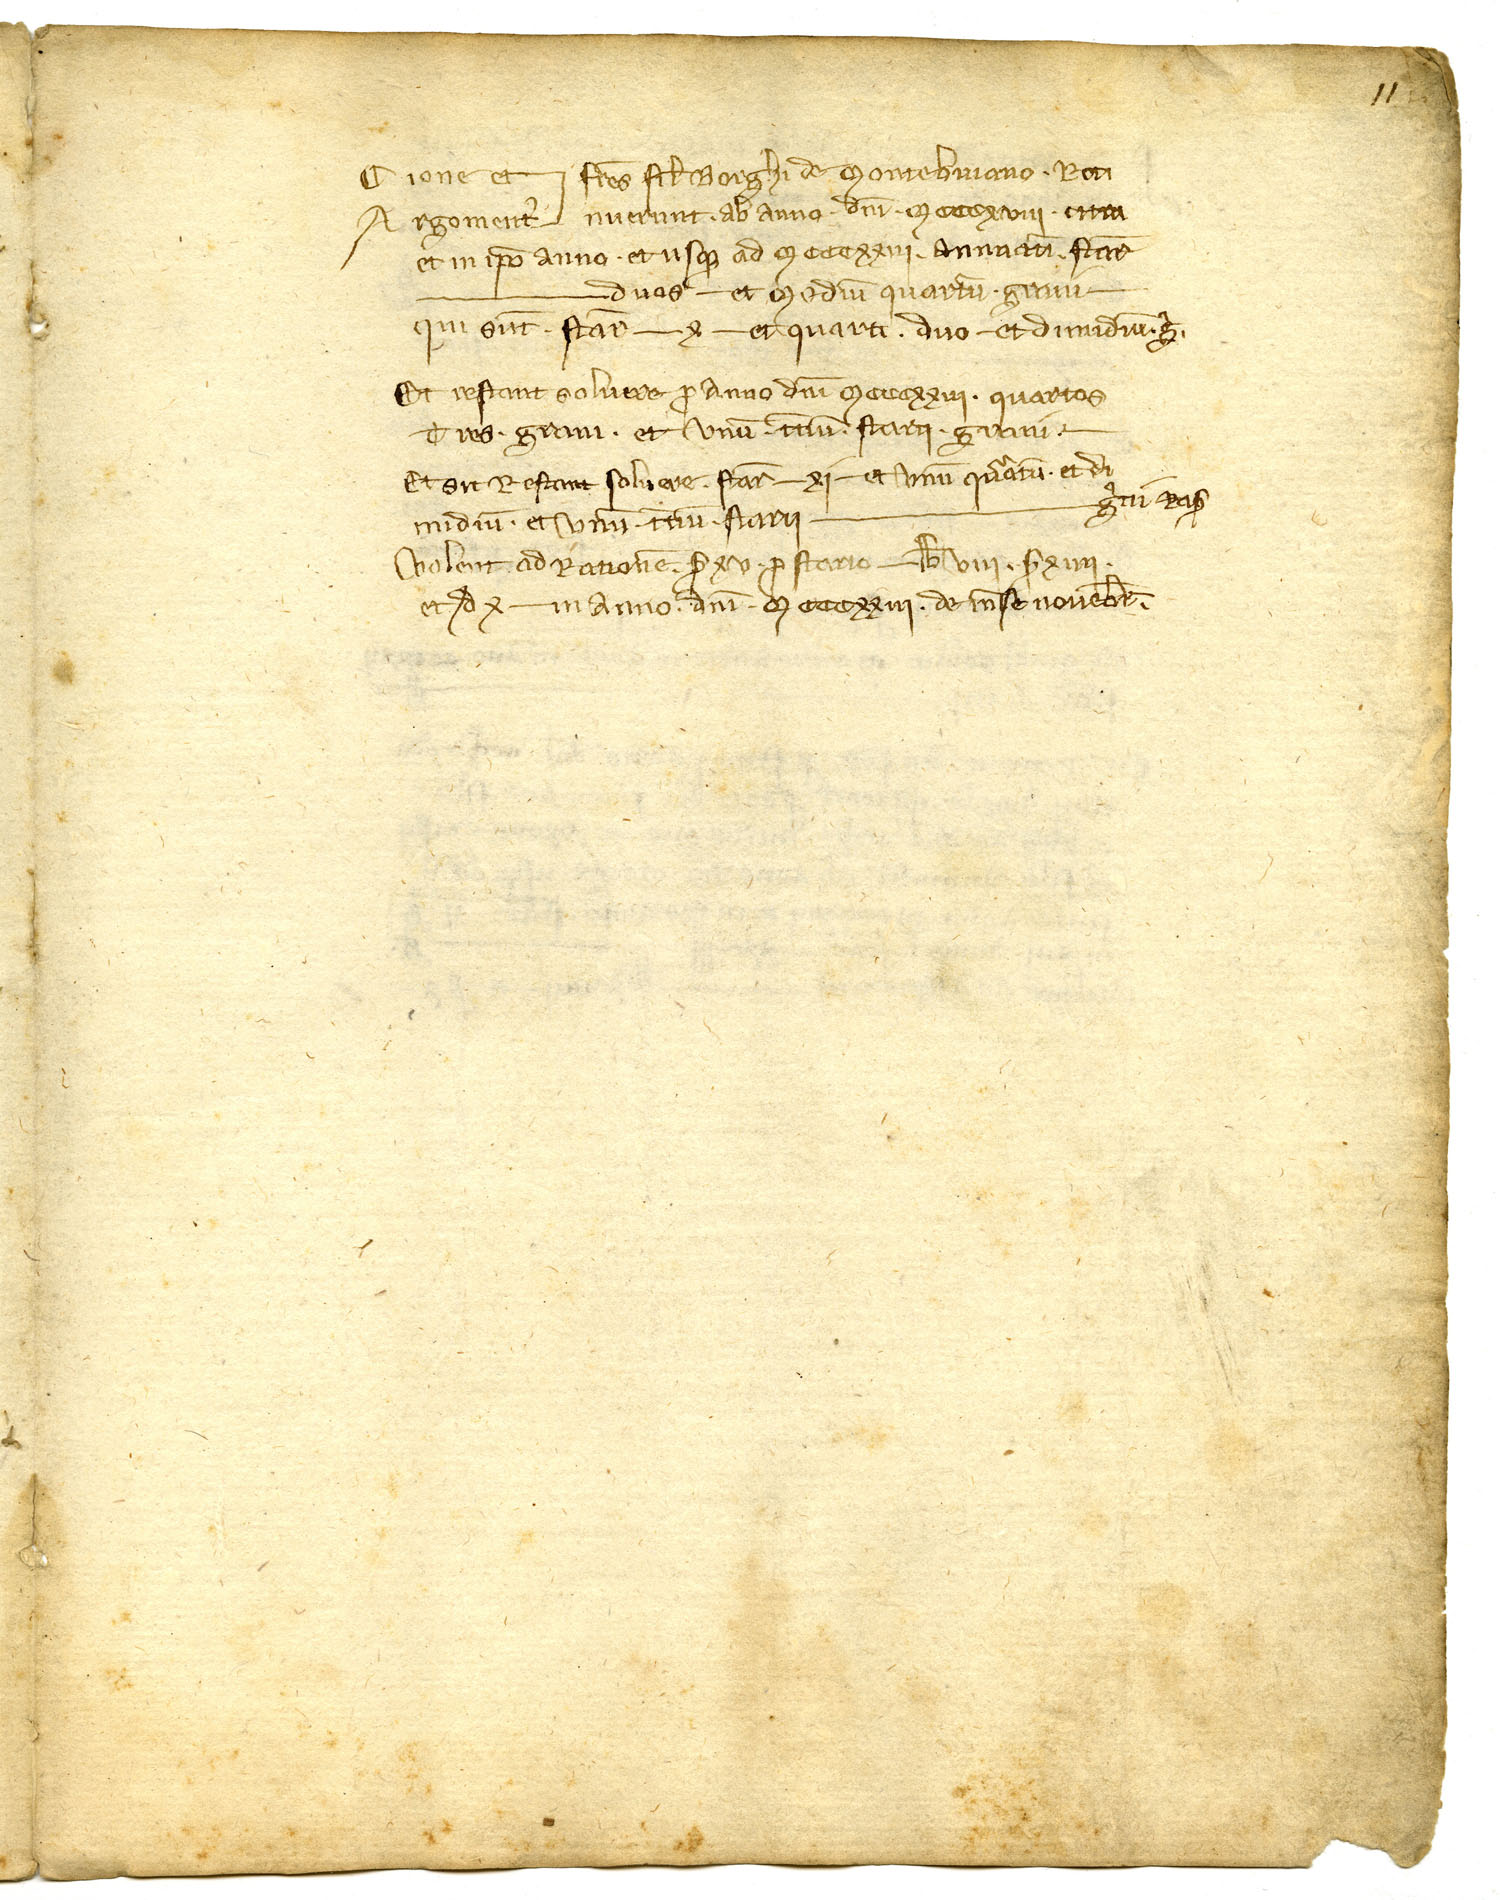 11
Cione et fr̄es filꝫ Borghi de Monteluiano · Reti
Argomentꝰ nuerunt · ab anno · dn̄i · Mcccxviii · citra
et in ip̄o anno · et usqꝫ ad Mcccxxiii · annuatī · star̄
duos — et Mediū quartū · grani —
qui sūt · star̄ — x — et quarti · duo — et dimidiū · g̃ ·
Et restant soluere ꝓ anno dn̄i Mcccxxiii · quartos
Tres · grani · et Unū · t̄tiū · starii · grani · —
Et sic Restant soluere · star̄ — xi — et Unū qu̾artū · et di
midiū · et Unū · t̄tiū · starii — gͣni
Volent ad Rationē · s̄ xv · ꝑ stario — lb̄ viii · s̄ xiiii ·
et đ x — in Anno · dn̄i · Mcccxxiii · de mēse nouēbr̄ ·